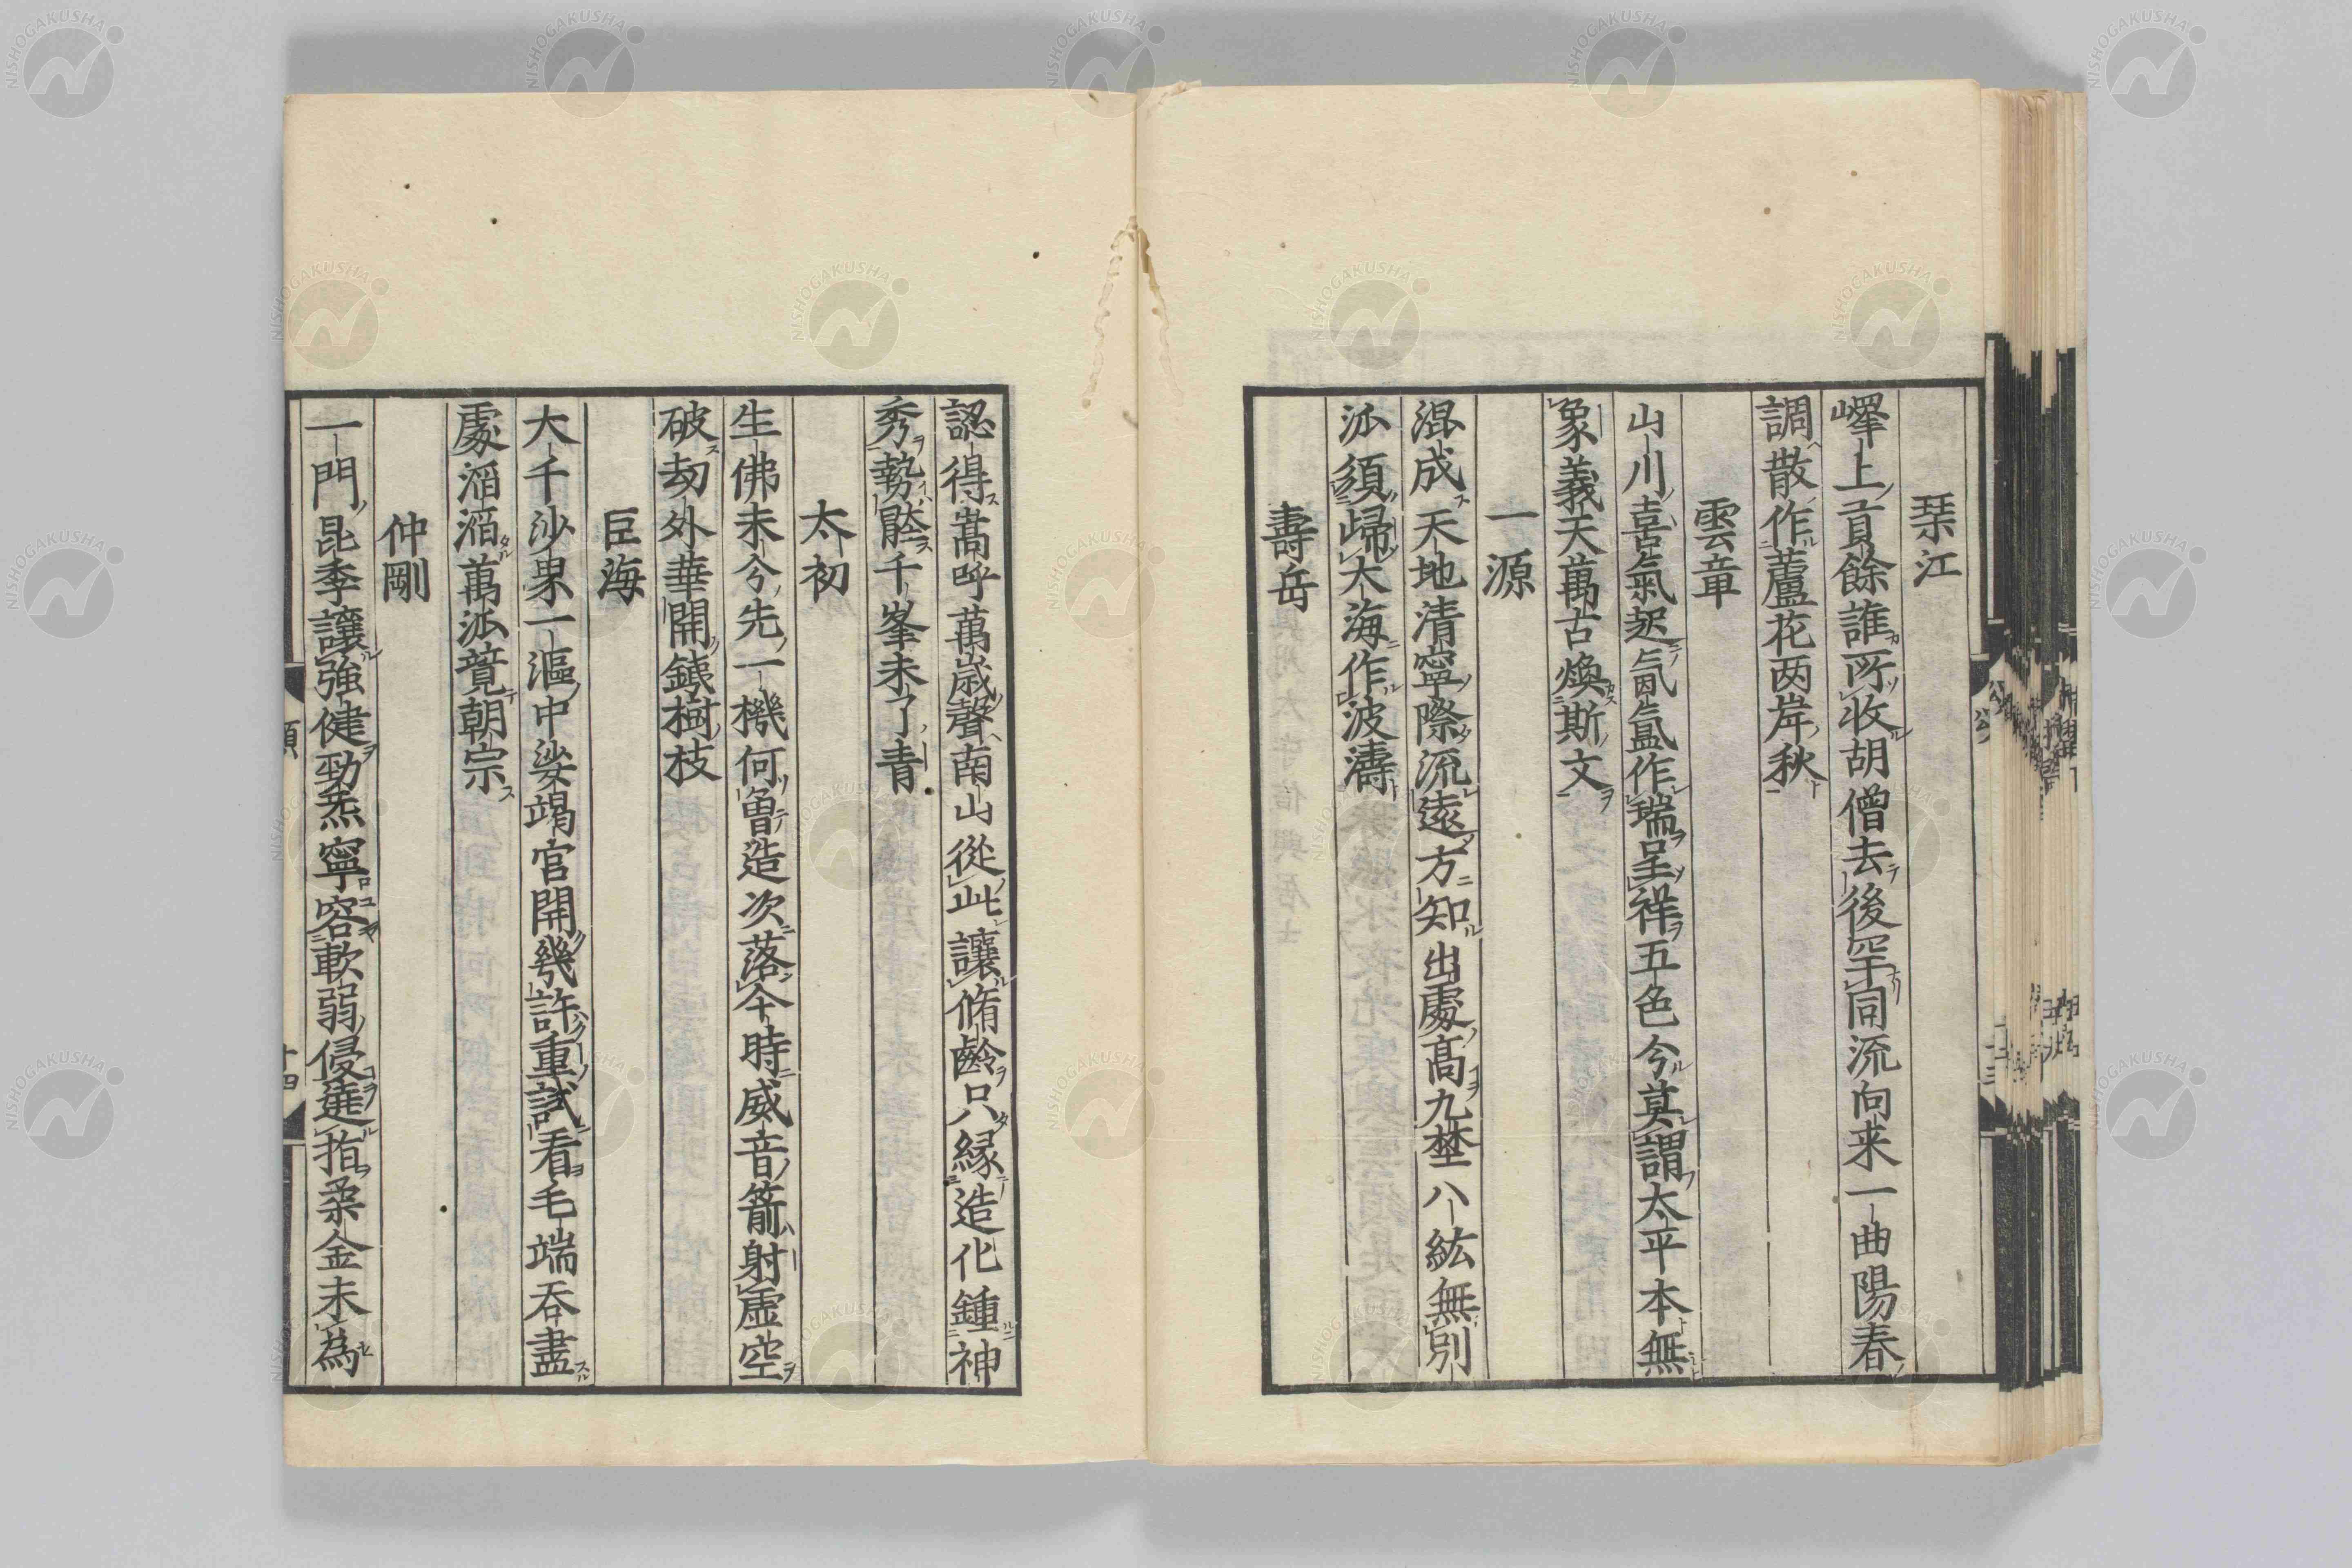 琹江
嶧上貢餘誰所收胡僧去後罕同流向来一曲陽春
調散作蘆花两岸秋
雲章
山川喜氣起氤氳作瑞呈祥五色今莫謂太平本無
象義天萬古煥斯文
一源
混成天地清寧際流遠方知出處髙九埜八紘無別
派須歸大海作波濤
壽岳
認得嵩呼萬歲聲南山從此讓脩齡只縁造化鍾神
秀勢壓千峯未了青
太初
生佛未分先一機何曽造次落今時威音箭射虚空
破劫外華開鐵樹枝
巨海
大千沙界一漚中娑竭官開幾許重試看毛端吞盡
處滔滔萬派竟朝宗
仲剛
一門昆季讓強健勁炁寧容軟弱侵莚指柔金未為
頌
十四